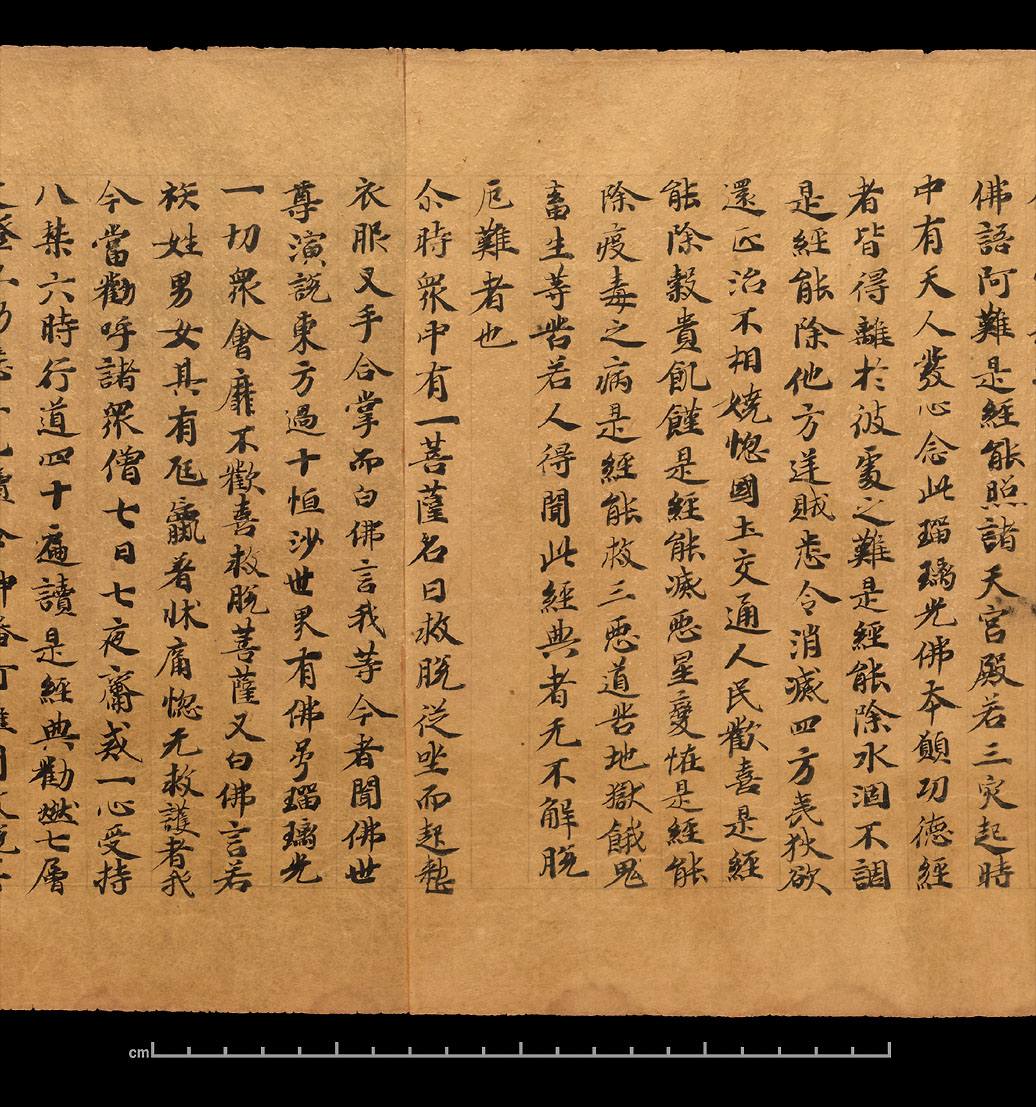 佛語阿難是經能照諸天宮殿若三灾起時
中有天人發心念此瑠璃光佛本願功德經
者皆得離於彼處之難是經能除水涸不調
是經能除他方逆賊悉令消滅四方夷狄欲
還正治不相燒惚國土交通人民歡喜是經
能除穀貴飢饉是經能滅惡星變怪是經能
除疫毒之病是經能救三惡道苦地獄餓鬼
畜生等苦若人得聞此經典者无不解脫
厄難者也
尒時衆中有一菩薩名曰救脫從坐而起整
衣服叉手合掌而白佛言我等今者聞佛世
尊演說東方過十恒沙世界有佛号瑠璃光
一切衆會靡不歡喜救脫菩薩又白佛言若
族姓男女其有尫羸著牀痛惚无救護者我
今當勸呼諸衆僧七日七夜齋戒一心受持
八禁六時行道四十遍讀是經典勸燃七層
cm